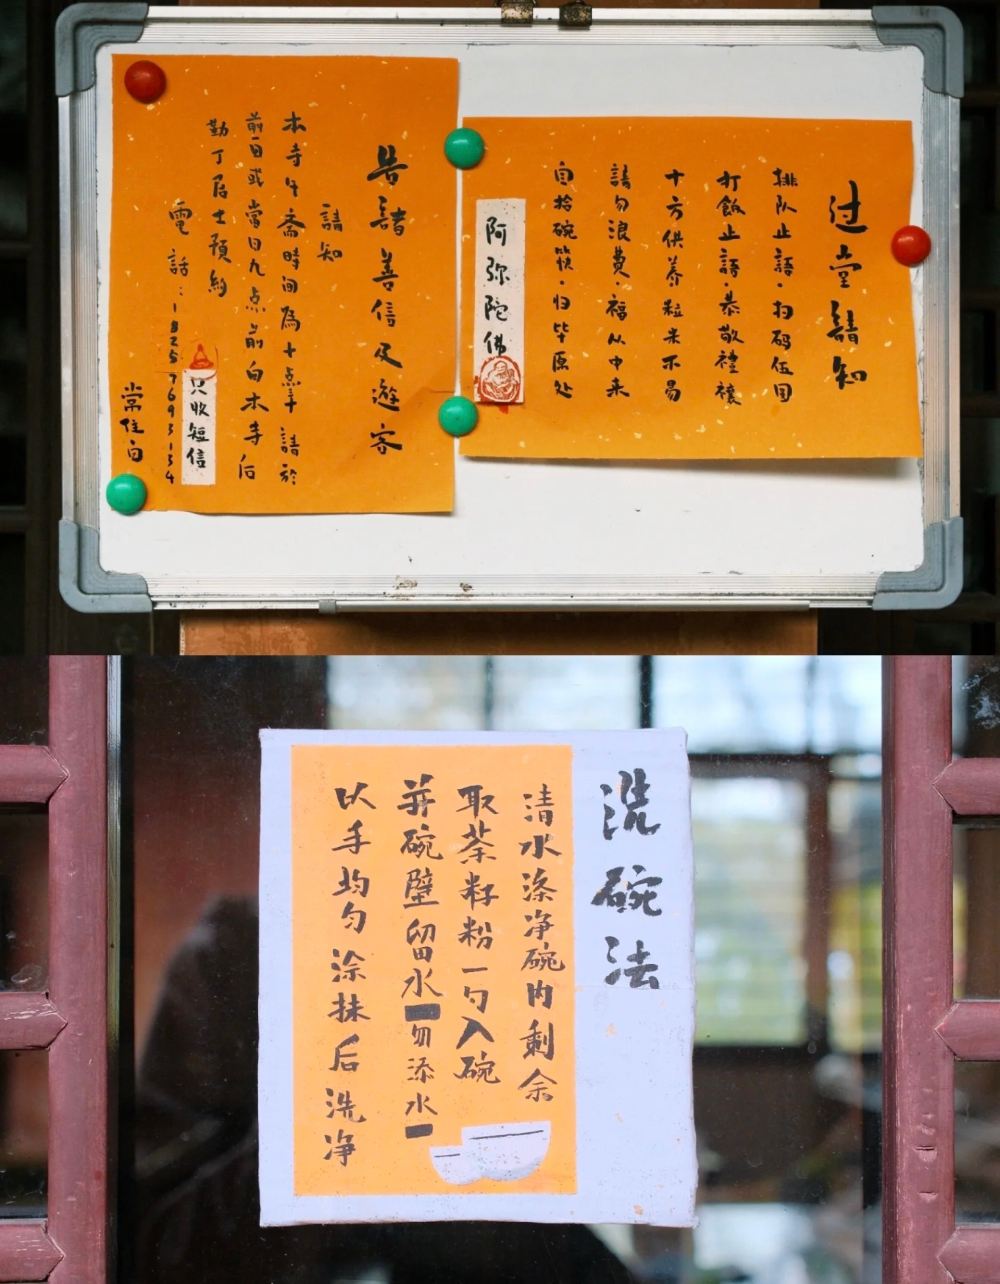 过堂請知
排队止語·扫码伍圆
打飯止語·恭敬禮讓
十方供养粒米不易
請勿浪費·福从中来
自拾碗筷·归毕原处
阿弥陀佛
告諸善信及遊客
請知
本寺午斋時间為十点半 請於
前日或當日九点前向本寺后
勤丁居士預約
電話：18257693134
只收短信
常住白
洗碗法
清水涤净碗内剩余
取茶籽粉一勺入碗
并碗壁留水（勿添水）
以手均匀涂抹后洗净